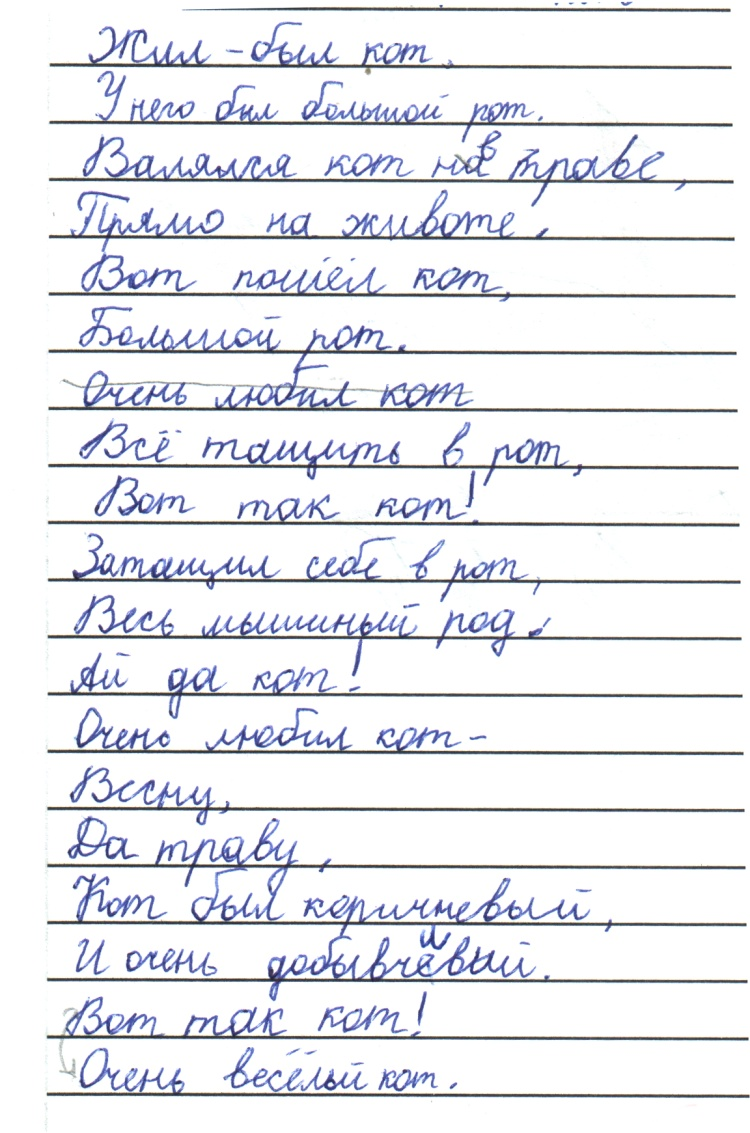 Жил-был кот.
У него был большой рот.
Валялся кот в траве,
Прямо на животе.
Вот пошёл кот,
Большой рот.
Очень любил кот
Всё тащить в рот,
Вот так кот!
Затащил себе в рот,
Весь мышиный род.
Ай да кот!
Очень любил кот-
Весну,
Да траву,
Кот был коричневый,
И очень добывчивый.
Вот так кот!
Очень весёлый кот.